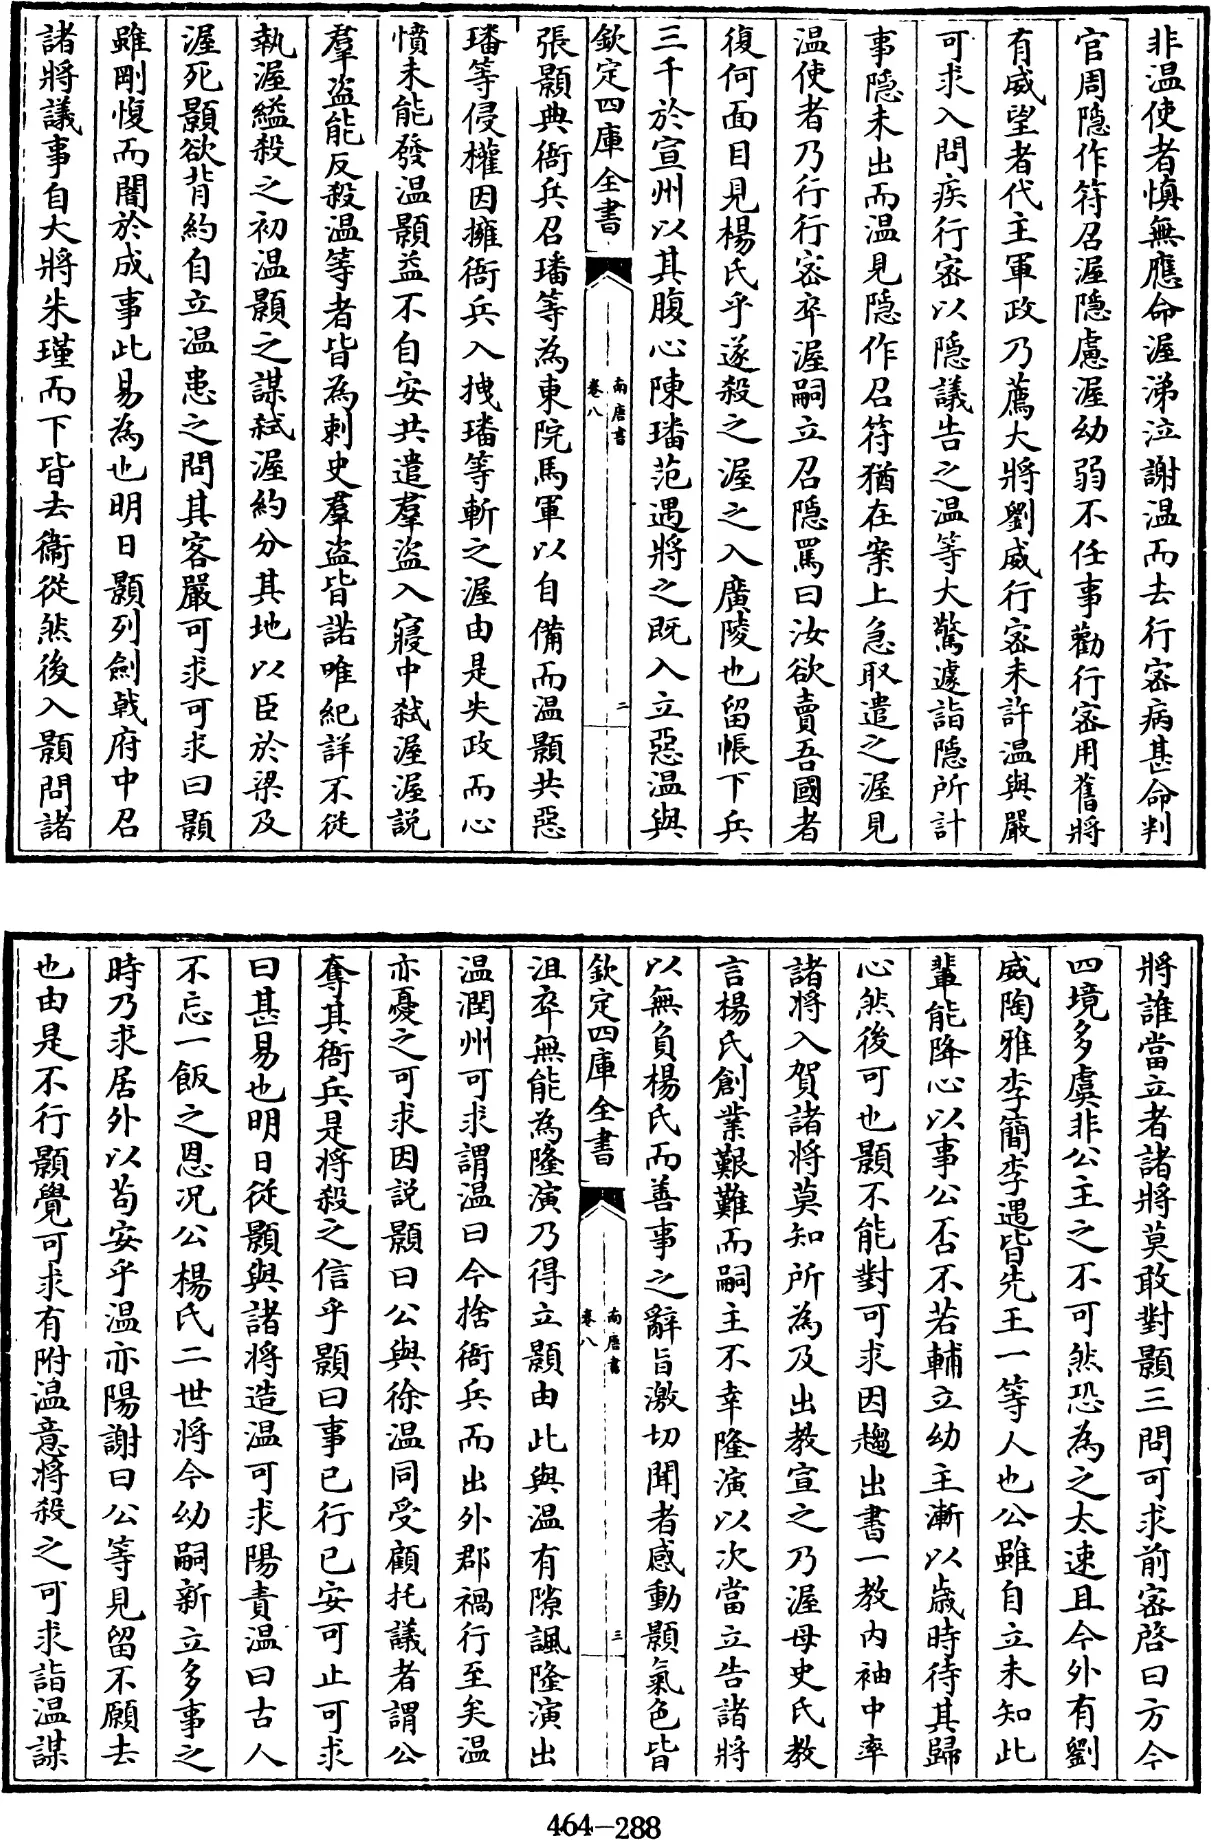 非温使者慎無應命渥涕泣謝温而去行密病甚命判
官周隱作符召渥隱慮渥幼弱不任事勸行密用舊將
有威望者代主軍政乃薦大將劉威行密未許温與嚴
可求入問疾行密以隱議告之温等大驚遽詣隱所計
事隱未出而温見隱作召符猶在案上急取遣之渥見
温使者乃行行密卒渥嗣立召隱罵曰汝欲賣吾國者
復何面目見楊氏乎遂殺之渥之入廣陵也留帳下兵
三千於宣州以其腹心陳璠范遇將之既入立惡温與
欽定四庫全書
南唐書
卷八
二
張顥典衙兵召璠等為東院馬軍以自備而温顥共惡
璠等侵權因擁衙兵入拽璠等斬之渥由是失政而心
憤未能發温顥益不自安共遣羣盜入寢中弑渥渥説
羣盜能反殺温等者皆為刺史羣盜皆諾唯紀詳不從
執渥縊殺之初温顥之謀弑渥約分其地以臣於梁及
渥死顥欲背約自立温患之問其客嚴可求可求曰顥
雖剛愎而闇於成事此易為也明日顥列劍戟府中召
諸將議事自大將朱瑾而下皆去衞從然後入顥問諸
將誰當立者諸將莫敢對顥三問可求前密啓曰方今
四境多虞非公主之不可然恐為之太速且今外有劉
威陶雅李簡李遇皆先王一等人也公雖自立未知此
輩能降心以事公否不若輔立幼主漸以歲時待其歸
心然後可也顥不能對可求因趨出書一教内袖中率
諸將入賀諸將莫知所為及出教宣之乃渥母史氏教
言楊氏創業艱難而嗣主不幸隆演以次當立告諸將
以無負楊氏而善事之辭旨激切聞者感動顥氣色皆
欽定四庫全書
南唐書
卷八
三
沮卒無能為隆演乃得立顥由此與温有隙諷隆演出
温潤州可求謂温曰今捨衙兵而出外郡禍行至矣温
亦憂之可求因説顥曰公與徐温同受顧托議者謂公
奪其衙兵是將殺之信乎顥曰事已行已安可止可求
曰甚易也明日從顥與諸將造温可求陽責温曰古人
不忘一飯之恩况公楊氏二世將今幼嗣新立多事之
時乃求居外以苟安乎温亦陽謝曰公等見留不願去
也由是不行顥覺可求有附温意將殺之可求詣温謀
464-288